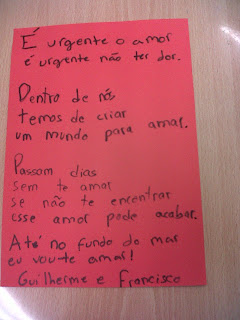 É urgente o amor
é urgente não ter dor.
Dentro de nós
temos de criar
um mundo para amar.
Passam dias
sem te amar
se não te encontrar
esse amor pode acabar.
Até no fundo do mar
eu vou-te amar!
Guilherme e Francisco